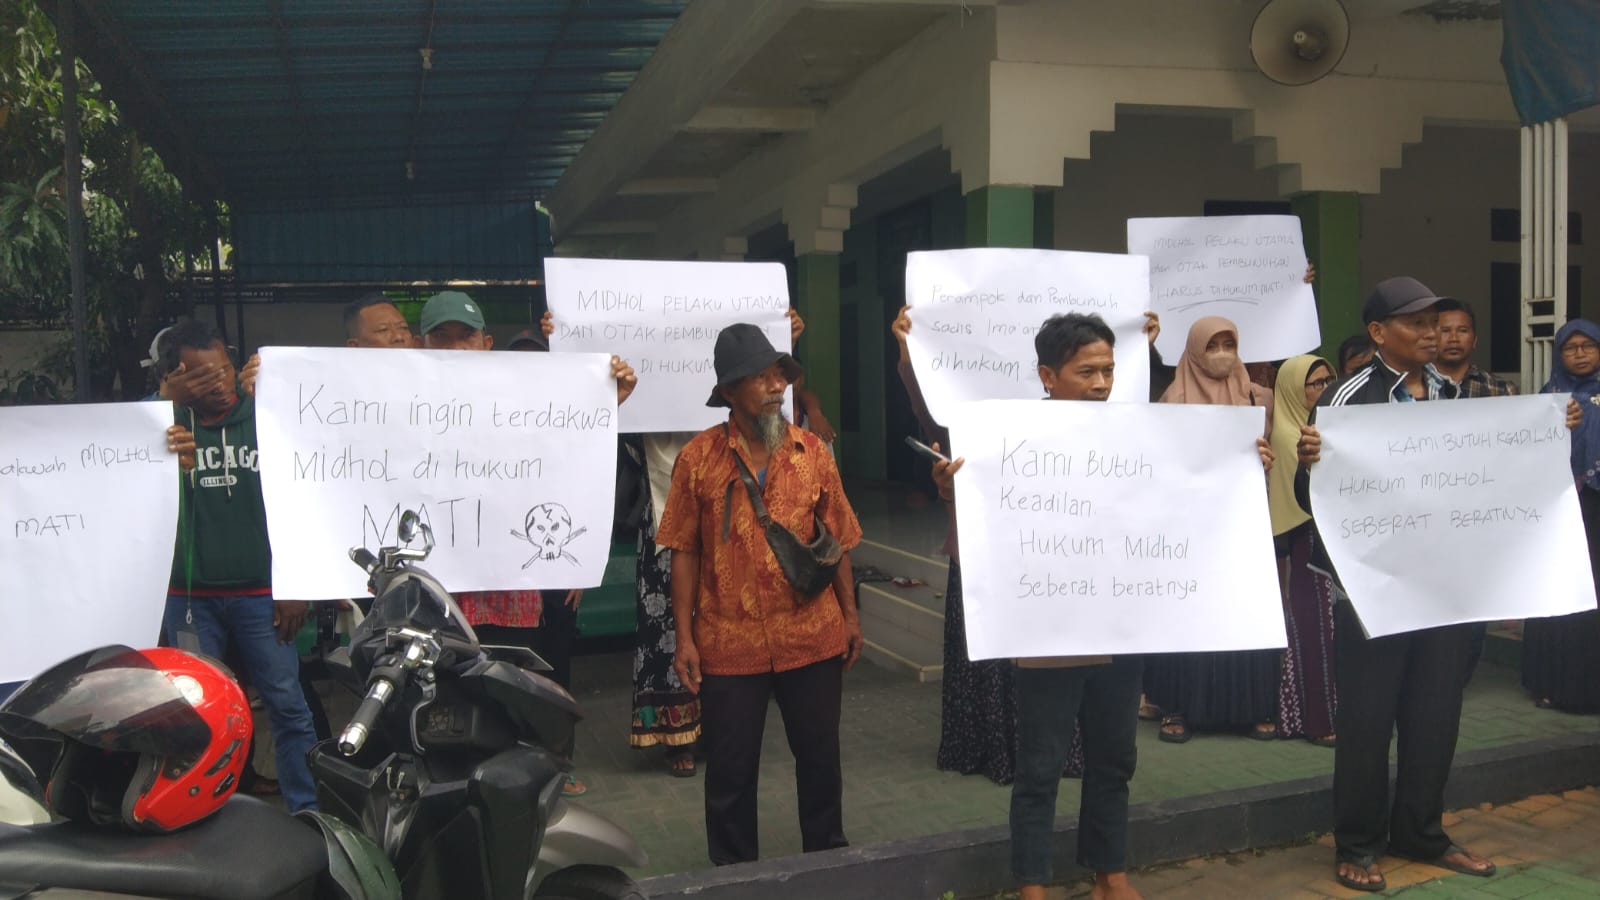 MIDHOL
MATI
CHICAGO
ILLINOIS
Kami ingin terdakwa
Midhol di hukum
MATI
MIDHOL PELAKU UTAMA
DAN OTAK
DI HUKUM
Perampok dan Pembunuh
sadis
dihukum
MIDHOL PELAKU UTAMA
dan OTAK PEMBUNUHAN
"HARUS DIHUKUM MATI"
Kami Butuh
Keadilan.
Hukum Midhol
Seberat beratnya
KAMI BUTUH KEADILAN
HUKUM MIDLHOL
SEBERAT BERATNYA